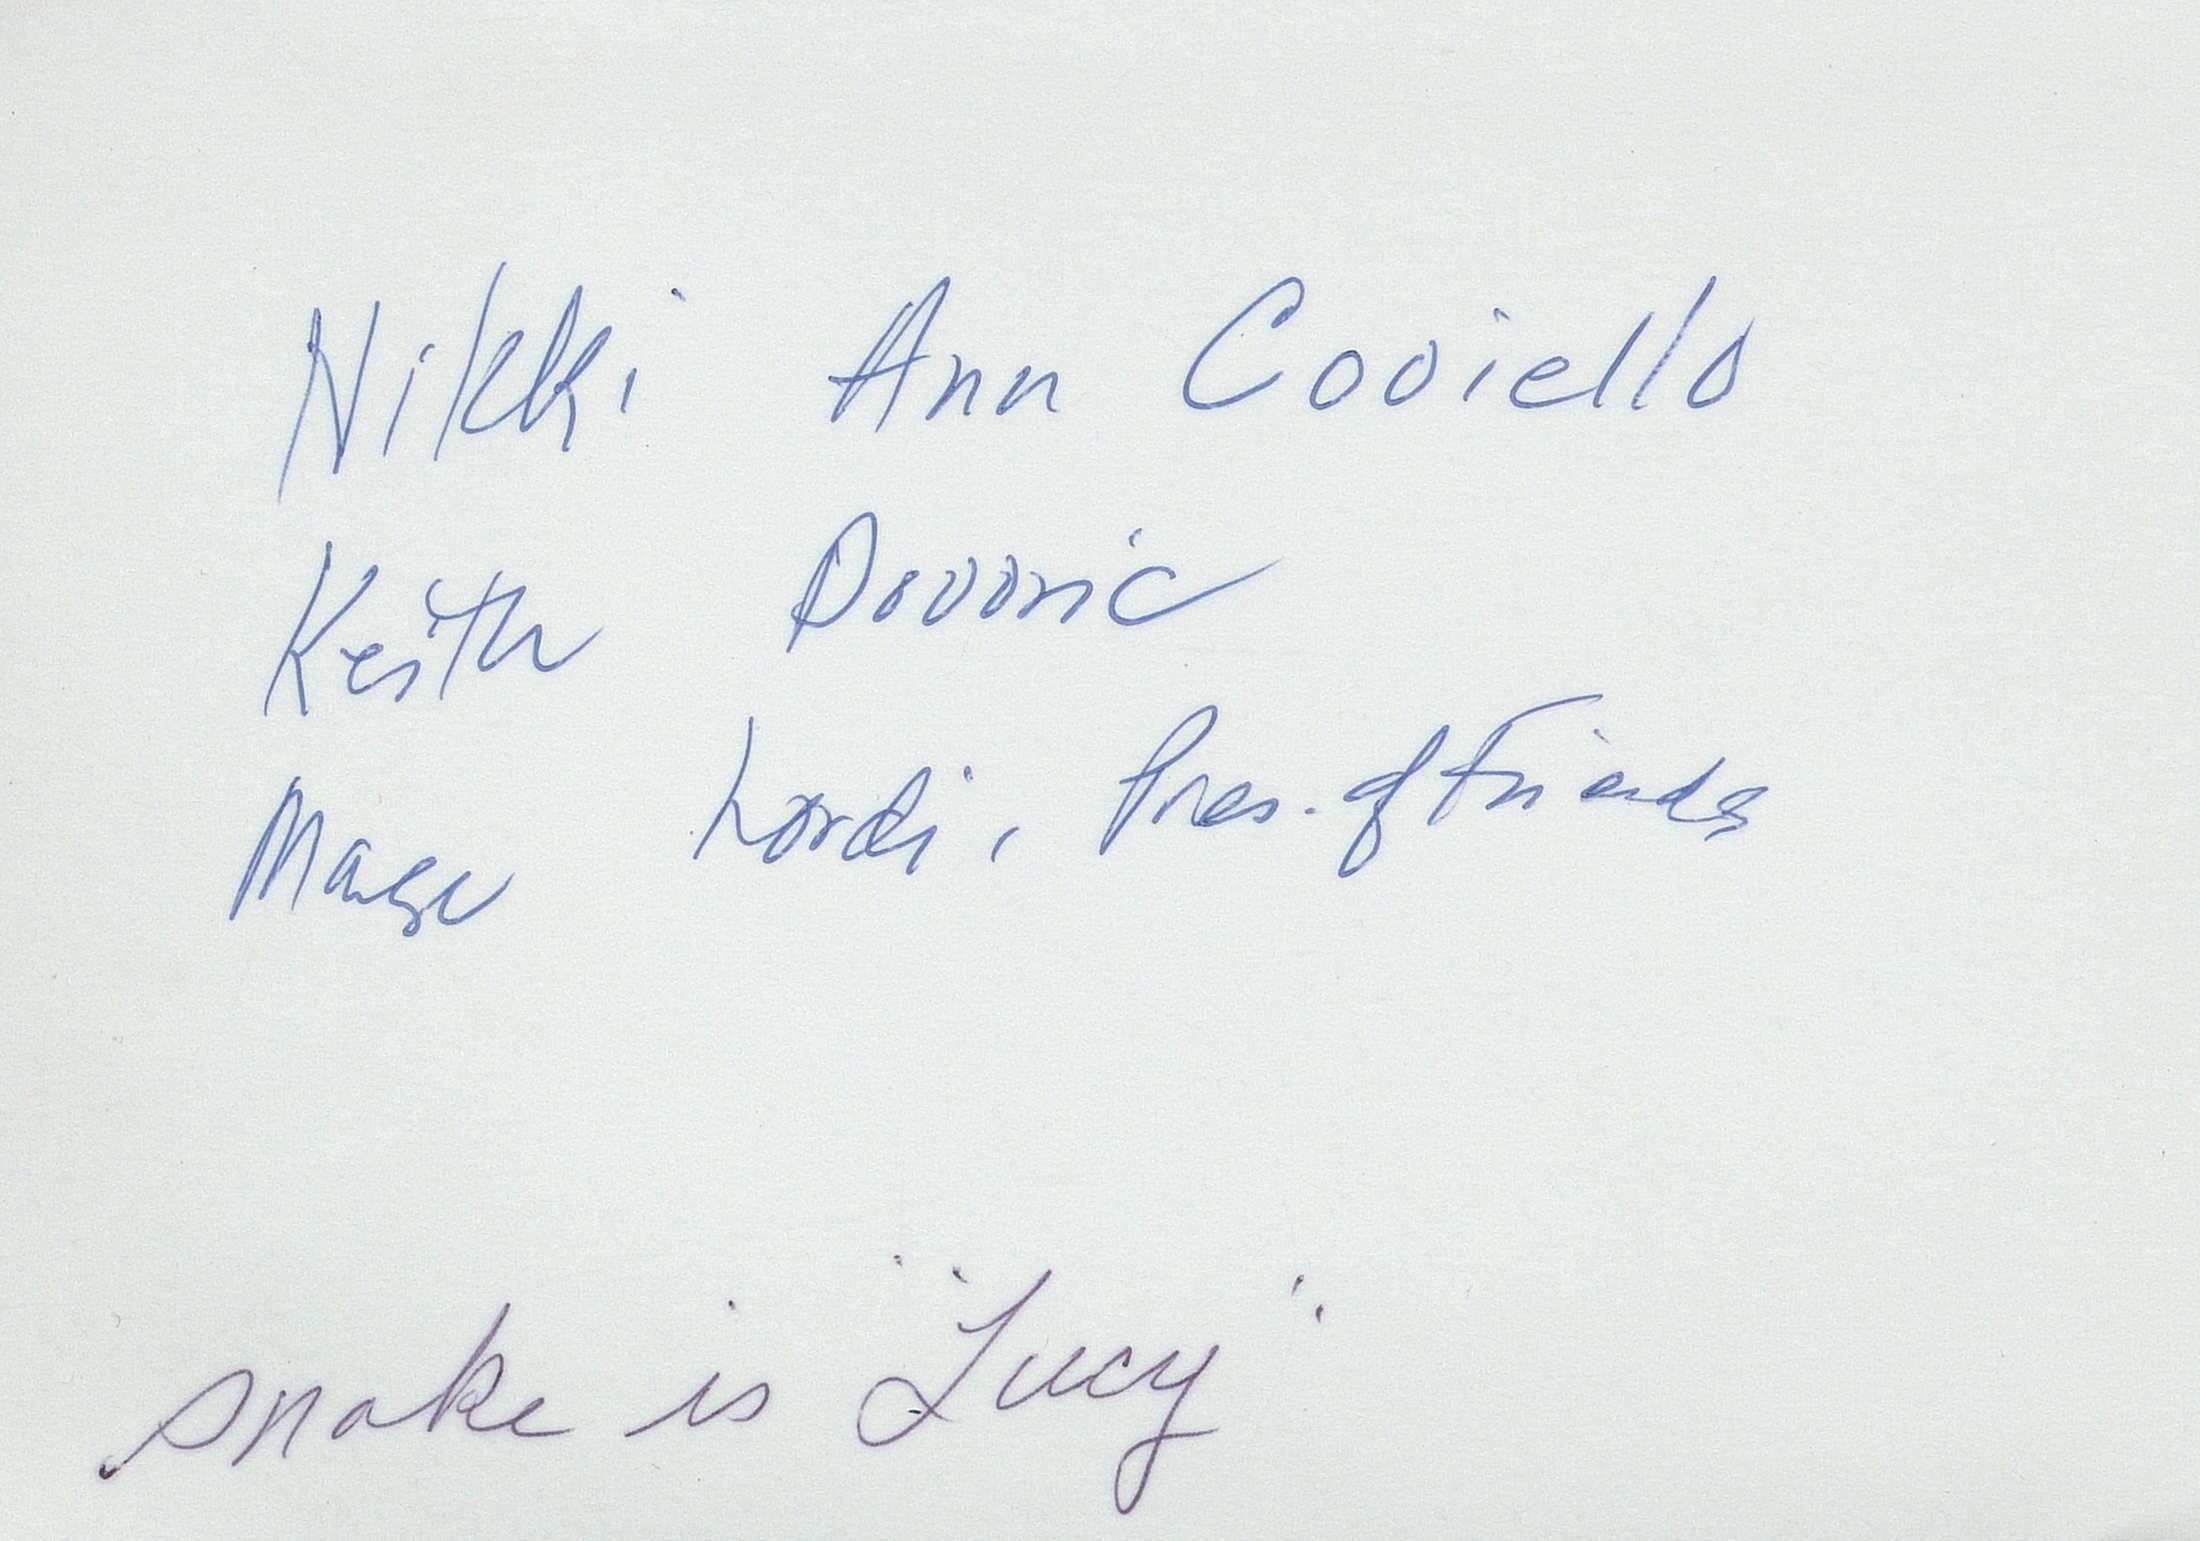 Nikki Ann Coviello
Keith Dovoric
Marge Lordi, Pres. of Friends
snake is "Lucy"